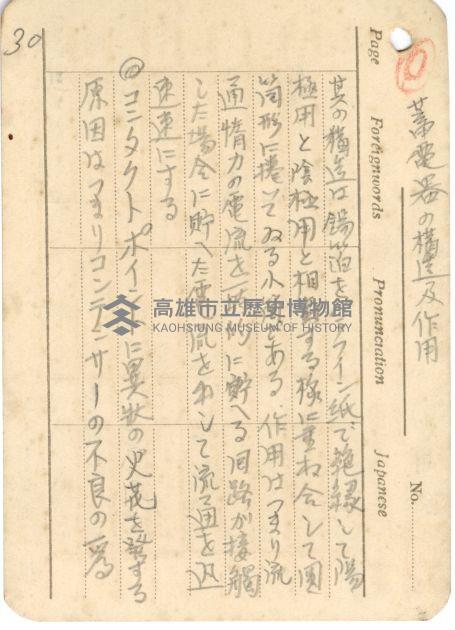 30
10
Page Foreignwords Pronunciation Japanese
No.
蓄電器の構造及作用
其の構造は錫箔をパラフイン紙で絶縁して陽
極用と陰極用と相対する様に重ね合して円
筒形に捲いてゐる小 である 作用はつまり流
通惰力の電流を 時に貯へる回路が接觸
した場合に貯へた電流を して流 通を迅
速にする
◎コンタクトポイントに異状の火花を發する
原因はつまりコンデンサーの不良の為
高雄市立歷史博物館
KAOHSIUNG MUSEUM OF HISTORY